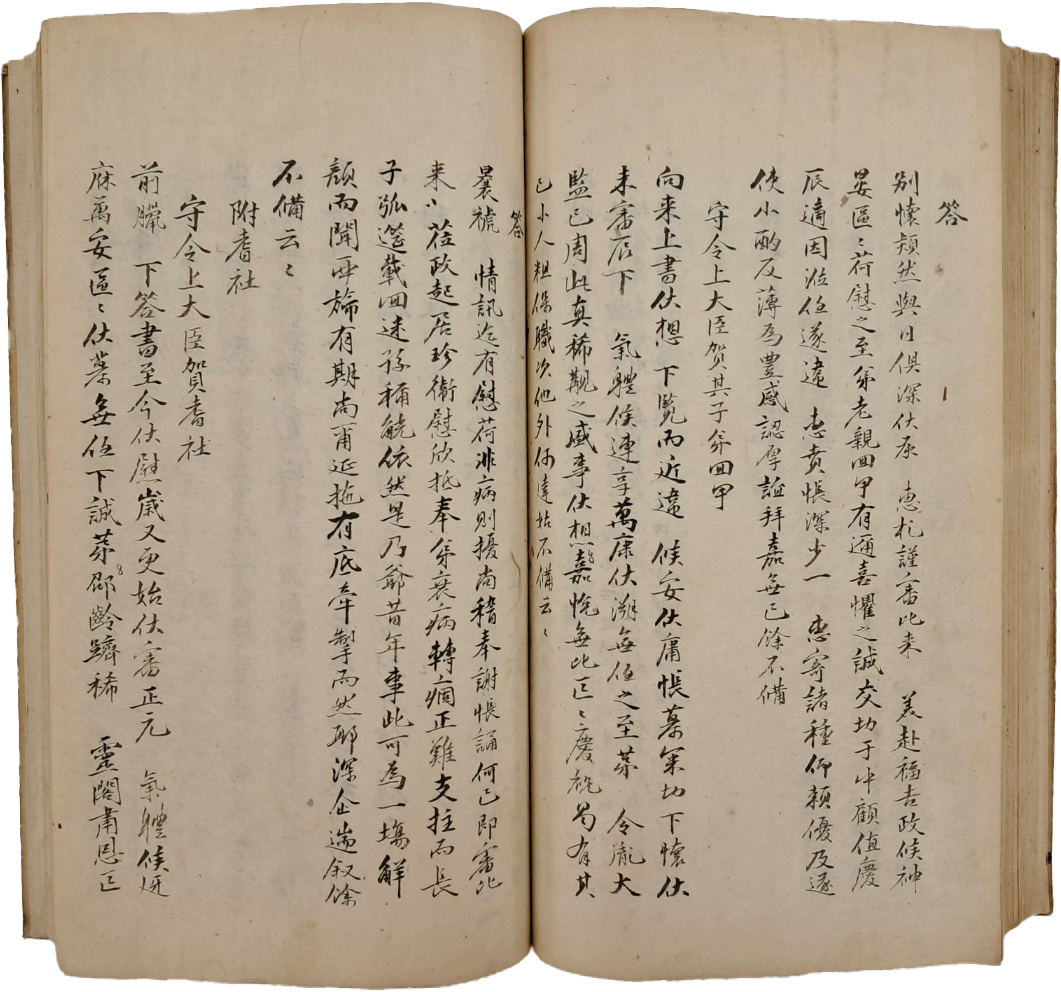 答
別懷頹然與日俱深伏承 惠札謹審此来 美赴福吉政候神
晏區〻荷慰之至弟老親回甲有邇喜懼之誠交切于中顧值慶
辰適因涖任遂違 惠賁悵深少一 惠寄諸種仰賴優及遂
使小酌反薄為豊感認厚誼拜嘉無已餘不備
守令上大臣賀其子弟回甲
向来上書伏想 下覽而近違 候安伏庸悵慕冞切下懷伏
未審辰下 氣體候連享萬康伏溯無任之至第 令胤大
監已周此真稀覯之盛事伏想嘉悅無比區〻慶祝曷有其
已小人粗保職次他外何達姑不備云〻
答
曩褫 情訊迄有慰荷非病則擾尚稽奉謝悵誦何已即審比
来 莅政起居珍衛慰欣抵奉弟衰病轉痼正難支拄而長
子弧筵載回逮孫稱觥依然是乃爺昔年事此可為一場解
顏而聞 旆有期尚甭延拖有底牽掣而然耶深企遄叙餘
不備云〻
附耆社
守令上大臣賀耆社
前臘 下答書至今伏慰歲又更始伏審正元 氣體候迓
庥萬安區〻伏慕無任下誠第邵齡躋稀 靈閣肅恩區